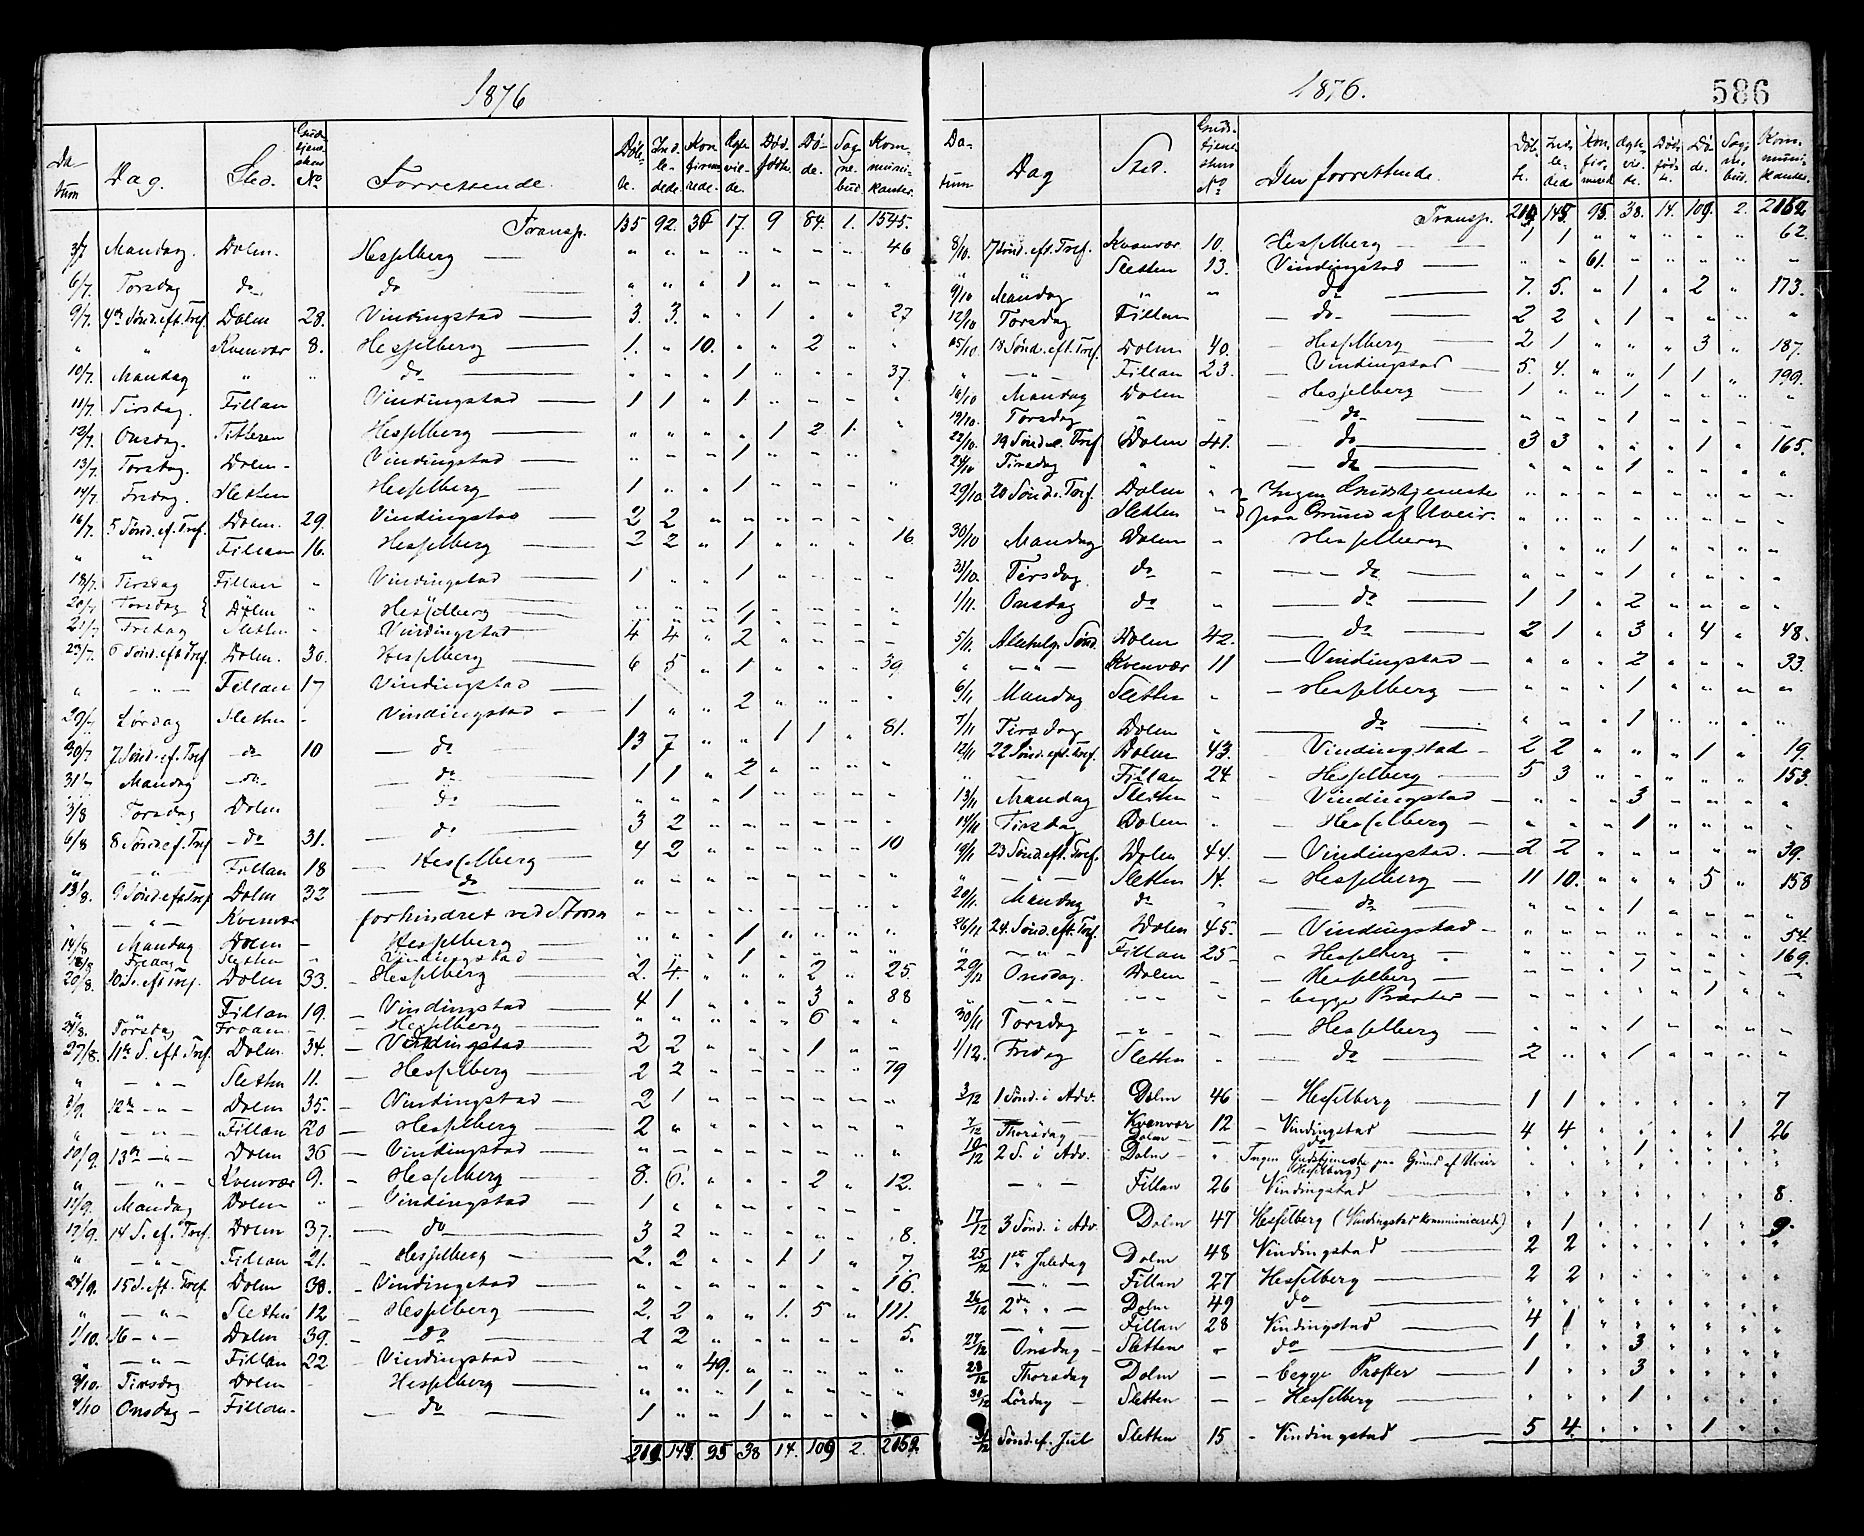 1876
Datum Dag. Sted. Gudstjenestens No Forrettende. Døbte. Indledede. Konfirmerede. Ægteviede. Dødfødte. Døde. Sognebud. Kommunikanter.
Transp. 135 92. 36 17. 9 84. 1. 1545.
3/7 Mandag. Dolm. Hesselberg — " " " " " " " 46
6/7. Torsdag do do — " " " 1 " " " "
9/7. 4de Sønd. eft. Tref. Dolm 28. Vindingstad — 3. 3. " " 1 " " 27
" " Kvenvær 8. Hesselberg — 1. " 10. " " 2 " "
10/7. Mandag " " do — " " " 1 " " " 37.
11/7. Tirsdag. Fillan Vindingstad — 1 1 " 1 " " " "
12/7. Onsdag. Titteren Hesselberg — " " " " 1 2 1. "
13/7. Torsdag. Dolm. Vindingstad — " " " 1 " " " "
14/7. Fredag. Sletten Hesselberg — 1 " " 1 " " " "
16/7. 5 Sønd. ef. Tref. Dolm. 29. Vindingstad — 2 2 " " " " " "
" " Fillan 16. Hesselberg — 2 2 " 1 " " " 16
18/7. Tirsdag Fillan " Vindingstad — 1 " " 1 " " " "
20/7 Torsdag Dolm " Hesselberg — " " " 1 " " " "
21/7 Fredag Sletten " Vindingstad — 4 4 " 2 " " " "
23/7. 6 Sønd. eft. Tref. Dolm. 30. Hesselberg — 6 5 " 1 " " " 39
" — " — Fillan 17 Vindingstad — " " " " " " " "
29/7 Lørdag Sletten - Vindingstad — 1 " " 2 " " " "
30/7 7 Sønd. ef. Tref — do 10 — do — 13 7 " " 1 1 " 81.
31/7 Mandag — do — do — 1 1 " 2 " " " "
3/8 Torsdag Dolm do — " " " 1 " " " "
6/8 8 Sønd. ef. Tref — do 31. — do — 3 2 " " " " " "
" — " — Fillan 18 — Hesselberg — 4 2 " " " " " 10
13/8. 9 Sønd. eft. Tref Dolm 32 — do — " " " " " " " "
" — " — Kvenvær forhindret ved Storm " " " " " " " "
14/8 Mandag Dolm — Hesselberg — " " " 1 " " " "
18/8 Fredag Sletten " Vindingstad — " " " 1 " " " "
20/8. 10 S. eft. Tref. Dolm 33. Hesselberg — 2. 4. " " " 2 " 25.
" " Fillan 19. — Vindingstad — 4 1 " " " 3 " 88
24/8. Torsdag Froan — Hesselberg — " " " " " 6 " "
27/8. 11te S. eft. Tref. Dolm. 34. — Vindingstad — 2 2 " " " 1 " "
" — " — Sletten 11. — Hesselberg — 2 2 " " " " " 79
3/9. 12te — " — Dolm 35. — Vindingstad — 2 1 " " " " " "
" — " — Fillan 20 — Hesselberg — 2 " " " " " " "
10/9. 13te — " — Dolm 36 — Vindingstad — " " " " " " " "
" — " — Kvenvær 9. — Hesselberg — 8. 6. " " " 2 " 12.
11/9. Mandag Dolm " — Vindingstad — 1 " " " " " " "
17/9. 14 S. ef. Tref. Dolm 37. — do — 3 2 " " " " " 8.
" — " — Fillan 21. — Hesselberg — 2. 2 " " 1 1 " 7.
24/9. 15 S. eft. Tref. Dolm 38. — Vindingstad — " " " " " " " 16.
" — " — Sletten 12 — Hesselberg — 2. 2 " " 1. 5 " 111.
1/10. 16 — " — Dolm 39. — do — 2 2 " " " " " 5.
" — " — Fillan 22 — Vindingstad — " " 49. " " " " "
3/10. Tirsdag Dolm — Hesselberg — " " " 1 " " " "
4/10 Onsdag — Fillan. — do — 1 " " 1 " " "
95 38 14. 109 2.
1876.
586
Datum Dag Sted. Gudstjenestens No Den forrettende. Døbte. Indledede Konfirmered Ægteviede. Dødfødte. Døde. Sognebud. Kommunikanter.
Transp. 95. 38. 14. 109. 2.
8/10. 17 Sønd. eft. Tref. Kvenvær 10. Hesselberg — 1 1 " " " " " 62.
" " Sletten 13. Vindingstad — " " 61. " " " " "
9/10 Mandag " " do — 7. 5. " 1 " 2 " 173.
12/10 Torsdag Fillan — do — 2 2 " 1 " " " "
15/10 18 Sønd. eft. Tref. Dolm 40. — Hesselberg — 2 1 " " " 3 " 187.
" — " — Fillan 23. — Vindingstad — 5. 4. " " 1 1 " 199.
16/10 Mandag Dolm — Hesselberg — 1 " " 1 " " " "
19/10. Torsdag " — do — " " " 1 " " " "
22/10. 19 Sønd. e. Tref Dolm 41. — do — 3 3 " " " 1 " 165.
24/10 Tirsdag " " — do — " " " 1 " " " "
29/10 20 Sønd. e. Tref. Dolm " Ingen Gudstjeneste " " " " " " " "
Sletten " paa Grund af Uveir. " " " " " " " "
30/10 Mandag Dolm " Hesselberg " " " 1 " " " "
31/10. Tirsdag. do — — do — " " " 1 " " " "
1/11. Onsdag do " — do — 1 1 " 2 " " " "
5/11. Allehelg. Sønd. Dolm 42. — do — 2 1 " 3 " 4 " 48.
" — " — Kvenvær 11 — Vindingstad — " " " 2 " " " 33.
6/11 Mandag Sletten " — Hesselberg — " " " 1 " " " "
7/11 Tirsdag Dolm " — do — " " " 1 " " " "
12/11 22 Sønd. eft. Tref Dolm 43. — Vindingstad — 2 2 " " " 1 " 19.
" Fillan 24. — Hesselberg — 5 3 " " " " " 153.
13/11 Mandag Sletten " — Vindingstad — " " " 3 " " " "
14/11 Tirsdag Dolm " — Hesselberg — " " " 1 " " " "
19/11 23 Sønd. eft. Tref. Dolm 44. — Vindingstad. — 2 2 " " " " " 39.
" — " — Sletten 14. — Hesselberg — 11 10. " " " 5 " 158
20/11. Mandag do " — do — " " " 1 " " " "
26/11 24. Sønd. eft. Tref. Dolm 45. — Vindingstad — " " " " " " " 54.
" — " — Fillan 25 — Hesselberg " " " " " " " 169.
29/11 Onsdag. Dolm — — Hesselberg — " " " 1 " " " "
— " — " " — begge Præster — " " " " " 1 " "
30/11 Torsdag — " — — Hesselberg — " " " 1 " " " "
1/12. Fredag Sletten " — do — 2 " " 1 " " " "
3/12 1 Sønd. i Adv. Dolm 46 — Hesselberg — 1 1 " " " " " 7
Kvenvær 12 — Vindingstad — 4 4 " " " " 1 26
7/12 Thorsdag — Dolm — — do — " " " " " " " "
10/12 2 S. i Adv. Dolm — " Ingen Gudstjeneste paa Grund af Uveir (Hesselberg)
— " — Fillan 26 Vindingstad — " " " " " " " 8.
17/12 3 Sønd. i Adv. Dolm 47 Hesselberg (Vindingstad kommunicerede) " 1 " " " 1 " 9.
25/12 1ste Juledag Dolm 48 Vindingstad — 2 2 " " " " " "
— " — Fillan 27 Hesselberg — 2 2 " " " " " "
26/12 2den " — Dolm 49 do — " " " " " " " "
— " — Fillan 28 Vindingstad — 4 1 " " " " " "
27/12 Onsdag — Sletten " do — 1 " " 3 " " " "
28/12 Thorsdag Dolm — — begge Præster — 1 " " 3 " " " "
30/12 Lördag — Sletten — — Hesselberg — " " " 1 " " " "
31/12 Sönd. ef. Jul Sletten 15 — Vindingstad — 5 4. " " " 1 " "